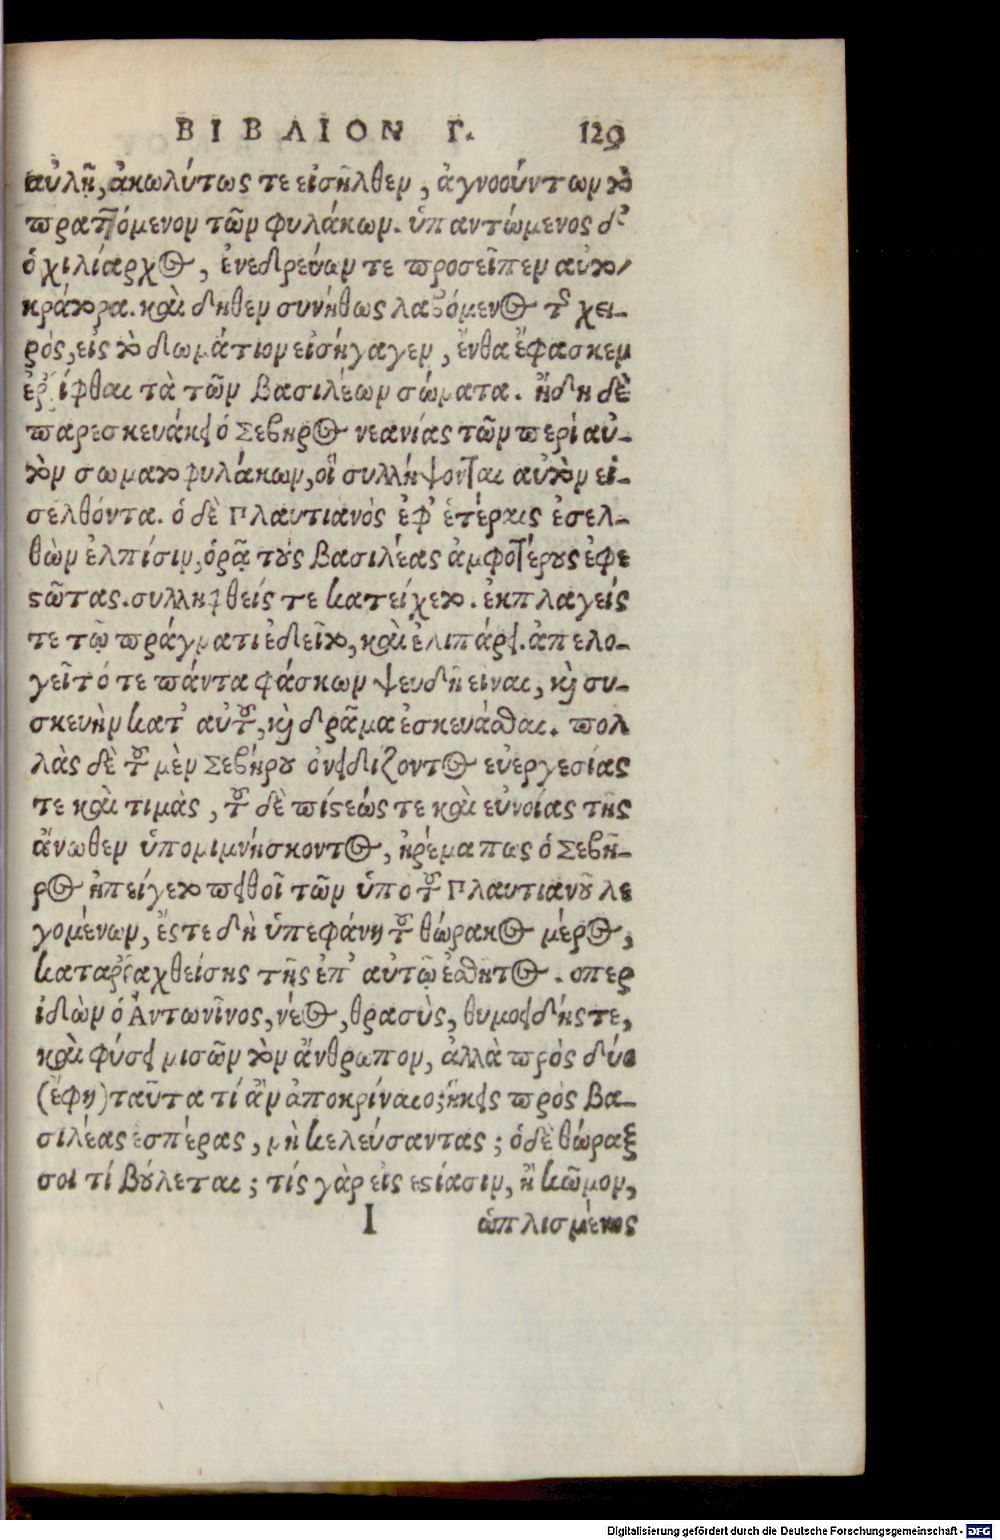 ΒΙΒΛΙΟΝ Γ. 129
αὐλῇ, ἀκωλύτως τε εἰσῆλθεν, ἀγνοούντων τὸ
πραττόμενον τῶν φυλάκων. ὑπαντώμενος δ᾽
ὁ χιλίαρχος, ἐνεδρεύων τε προσεῖπεν αὐτο/
κράτορα. καὶ δῆθεν συνήθως λαβόμενος τῆς χει-
ρὸς, εἰς τὸ δωμάτιον εἰσήγαγεν, ἔνθα ἔφασκεν
ἐῤῥίφθαι τὰ τῶν βασιλέων σώματα. ἤδη δὲ
παρεσκευάκει ὁ Σεβηρος νεανίας τῶν περὶ αὐ-
τὸν σωματοφυλάκων, οἳ συλλήψονται αὐτὸν εἰ-
σελθόντα. ὁ δὲ Πλαυτιανὸς ἐφ᾽ ἑτέραις ἐσελ-
θὼν ἐλπίσιν, ὁρᾷ τοὺς βασιλέας ἀμφοτέρους ἐφε
στῶτας. συλληφθείς τε κατείχετο. ἐκπλαγείς
τε τῷ πράγματι ἐδεῖτο, καὶ ἐλιπάρει. ἀπελο-
γεῖτό τε πάντα φάσκων ψευδῆ ειναι, καὶ συ-
σκευὴν κατ᾽ αὐτοῦ, καὶ δρᾶμα ἐσκευάσθαι. πολ
λὰς δὲ τοῦ μὲν Σεβήρου ὀνειδίζοντος εὐεργεσίας
τε καὶ τιμὰς, τοῦ δὲ πίστεώς τε καὶ εὐνοίας τῆς
ἄνωθεν ὑπομιμνήσκοντος, ἠρέμα πως ὁ Σεβῆ-
ρος ἠπείγετο πειθοῖ τῶν ὑπο τοῦ Πλαυτιανοῦ λε
γομένων, ἔστε δὴ ὑπεφάνη τοῦ θώρακος μέρος,
καταῤῥαχθείσης τῆς ἐπ᾽ αὐτῷ ἐσθητος. οπερ
ἰδὼν ὁ Ἀντωνῖνος, νέος, θρασὺς, θυμοειδής τε,
καὶ φύσει μισῶν τὸν ἄνθρωπον, ἀλλὰ πρὸς δύο
(ἔφη) ταῦτα τί ἂν ἀποκρίναιο; ἥκεις πρὸς βα-
σιλέας εσπέρας, μὴ κελεύσαντας; ὁ δὲ θώραξ
σοι τί βούλεται; τίς γὰρ εἰς εστίασιν, ἢ κῶμον,
I ὡπλισμένος
Digitalisierung gefördert durch die Deutsche Forschungsgemeinschaft - DFG